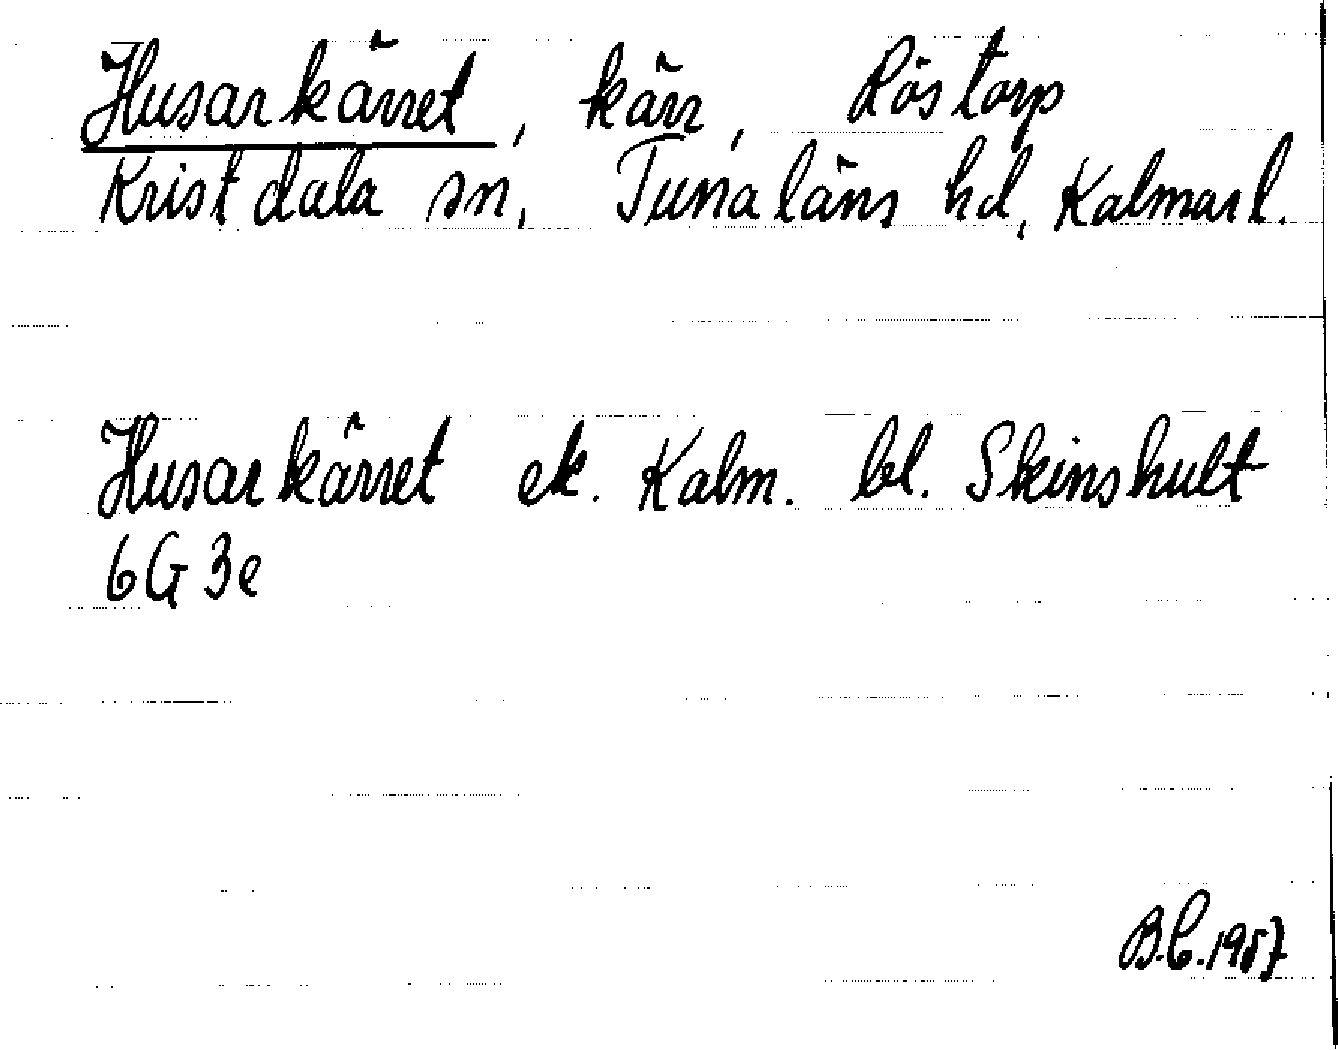 Husarkärret, kärr, Röstorp
Kristdala sn, Tunaläns hd, Kalmar l.
Husarkärret ek. Kalm. bl. Skinshult
6G3e
B.C. 1987